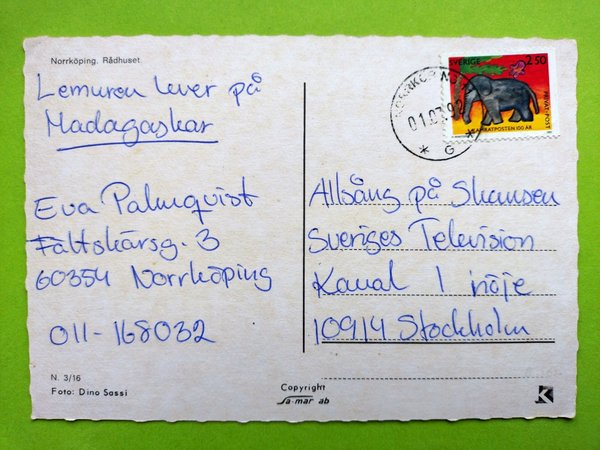 Norrköping. Rådhuset
Lemuren lever på
Madagaskar
Eva Palmquist
Fältskärsg. 3
60354 Norrköping
011-168032
N. 3/16
Foto: Dino Sassi
SVERIGE 2.50
PRIVAT-POST
KAMRATPOSTEN 100 ÅR
NORRKÖPING
01.07.92
* G *
Allsång på Skansen
Sveriges Television
Kanal 1 nöje
10914 Stockholm
Copyright
sa-mar ab
K